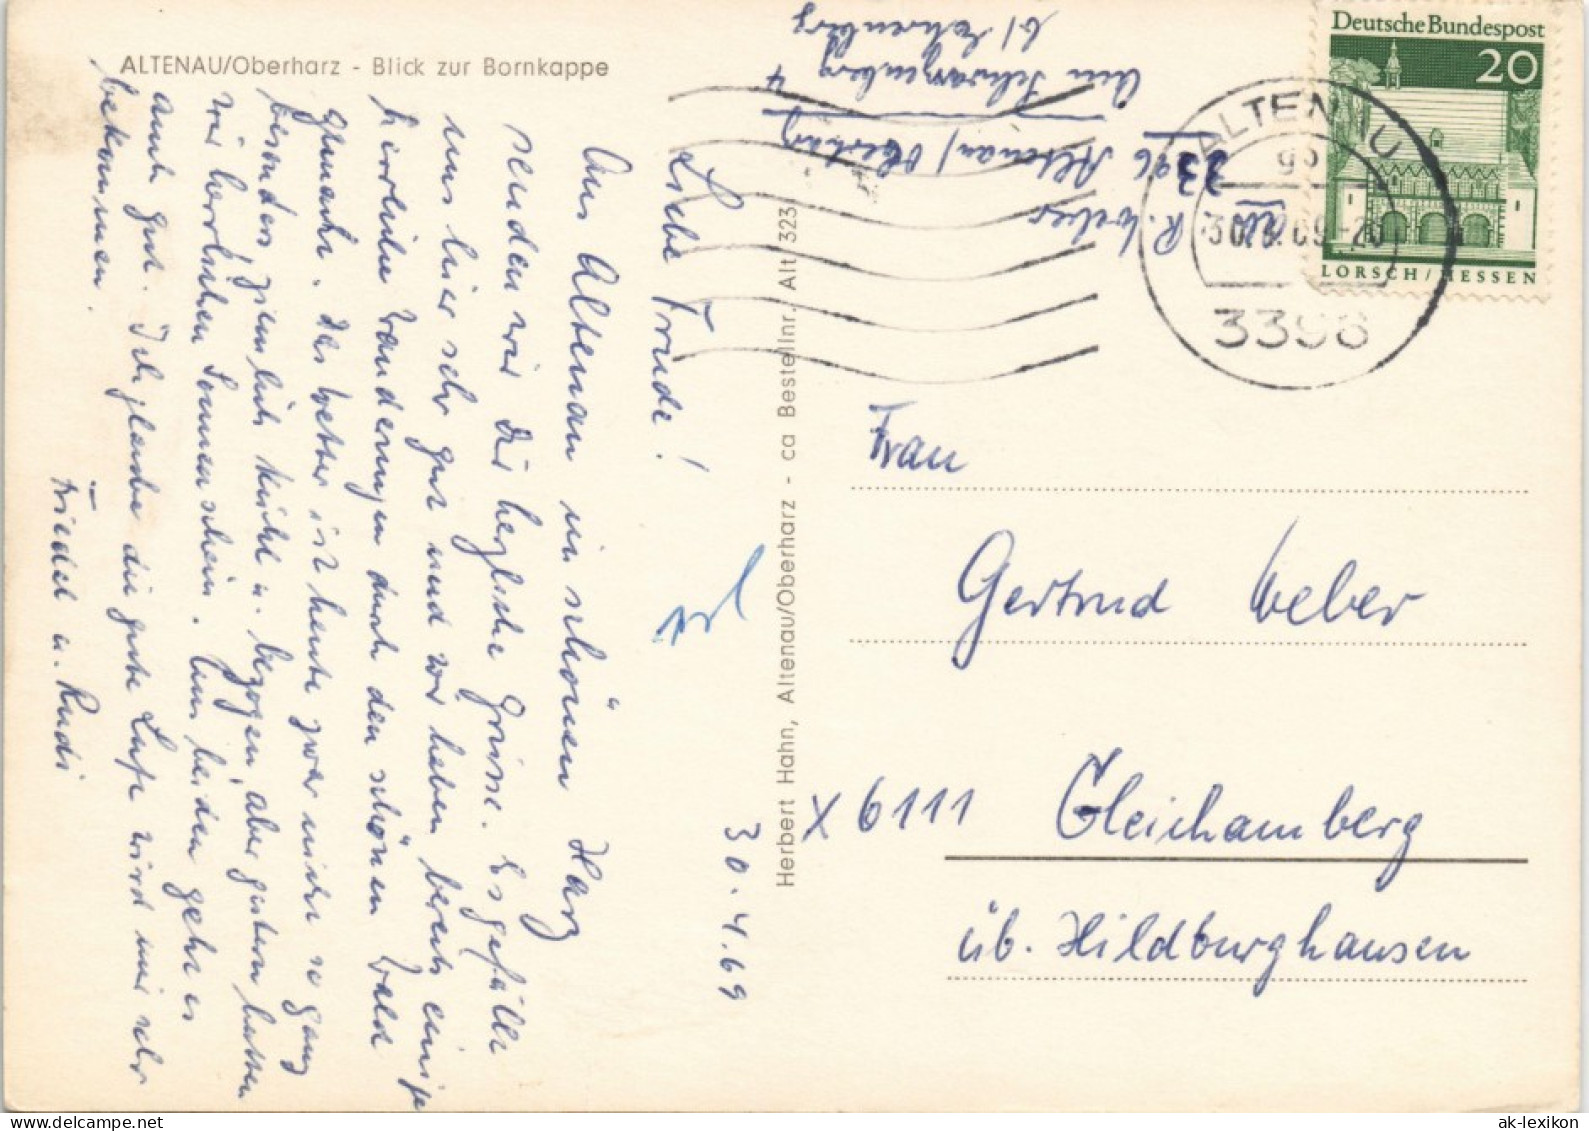 ALTENAU/Oberharz - Blick zur Bornkappe
30.4.69
Liebe Trude!
Aus Altenau im schönen Harz
senden wir Dir herzliche Grüsse. Es gefällt
uns hier sehr gut und wir haben bereits einige
herrliche Wanderungen durch den schönen Wald
gemacht. Das Wetter ist heute zwar nicht so ganz
besonders, ziemlich kühl u. bezogen, aber gestern hatten
wir herrlichen Sonnenschein. Uns beiden geht es
auch gut. Ich glaube die gute Luft wird mir sehr
bekommen.
Friedel u. Rudi
Herbert Hahn, Altenau/Oberharz - ca Bestellnr. Alt 323
Abs.
R. Weber
3396 Altenau/Oberharz
Am Schwarzenberg 4
b/ Ehrenberg
Deutsche Bundespost
20
LORSCH/HESSEN
ALTENAU
30.4.69-20
3396
Frau
Gertrud Weber
X 6111 Gleichamberg
üb. Hildburghausen
ak-lexikon